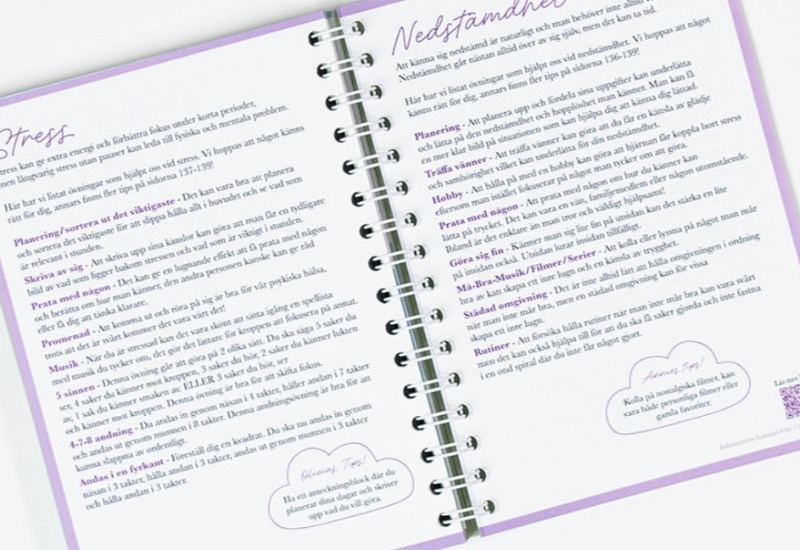 Stress
Stress kan ge extra energi och förbättra fokus under korta perioder,
men långvarig stress utan pauser kan leda till fysiska och mentala problem.
Här har vi listat övningar som hjälpt oss vid stress. Vi hoppas att något känns
rätt för dig, annars finns fler tips på sidorna 137-139!
Planering/sortera ut det viktigaste - Det kan vara bra att planera
och sortera det viktigaste för att slippa hålla allt i huvudet och se vad som
är relevant i stunden.
Skriva av sig - Att skriva upp sina känslor kan göra att man får en tydligare
bild av vad som ligger bakom stressen och vad som är viktigt i stunden.
Prata med någon - Det kan ge en lugnande effekt att få prata med någon
och berätta om hur man känner, den andra personen kanske kan ge råd
eller få dig att tänka klarare.
Promenad - Att komma ut och röra på sig är bra för vår psykiska hälsa,
trots att det är svårt kommer det vara värt det!
Musik - När du är stressad kan det vara skönt att sätta igång en spellista
med musik du tycker om, det gör det lättare för kroppen att fokusera på annat.
5 sinnen - Denna övning går att göra på 2 olika sätt. Du ska säga 5 saker du
ser, 4 saker du känner mot kroppen, 3 saker du hör, 2 saker du känner lukten
av, 1 sak du känner smaken av. ELLER 3 saker du hör, ser
och känner mot kroppen. Denna övning är bra för att skifta fokus.
4-7-8 andning - Du andas in genom näsan i 4 takter, håller andan i 7 takter
och andas ut genom munnen i 8 takter. Denna andningsövning är bra för att
kunna slappna av ordentligt.
Andas i en fyrkant - Föreställ dig en kvadrat. Du ska nu andas in genom
näsan i 3 takter, hålla andan i 3 takter, andas ut genom munnen i 3 takter
och hålla andan i 3 takter.
Olivias Tips!
Ha ett anteckningsblock där du
planerar dina dagar och skriver
upp vad du vill göra.
Nedstämdhet
Att känna sig nedstämd är naturligt och man behöver inte alltid v
Nedstämdhet går nästan alltid över av sig själv, men det kan ta tid.
Här har vi listat övningar som hjälpt oss vid nedstämdhet. Vi hoppas att något
känns rätt för dig, annars finns fler tips på sidorna 136-139!
Planering - Att planera upp och fördela sina uppgifter kan underlätta
och lätta på den nedstämdhet och hopplöshet man känner. Man kan få
en mer klar bild på situationen som kan hjälpa dig att känna dig lättad.
Träffa vänner - Att träffa vänner kan göra att du får en känsla av glädje
och samhörighet vilket kan underlätta för din nedstämdhet.
Hobby - Att hålla på med en hobby kan göra att hjärnan får koppla bort stress
eftersom man istället fokuserar på något man tycker om att göra.
Prata med någon - Att prata med någon om hur du känner kan
lätta på trycket. Det kan vara en vän, familjemedlem eller någon utomstående.
Ibland är det enklare än man tror och väldigt hjälpsamt!
Göra sig fin - Känner man sig lite fin på utsidan kan det stärka en lite
på insidan också. Utsidan lurar insidan tillfälligt.
Må-Bra-Musik/Filmer/Serier - Att kolla eller lyssna på något man mår
bra av kan skapa ett inre lugn och en känsla av trygghet.
Städad omgivning - Det är inte alltid lätt att hålla omgivningen i ordning
när man inte mår bra, men en städad omgivning kan för vissa
skapa ett inre lugn.
Rutiner - Att försöka hålla rutiner när man inte mår bra kan vara svårt
men det kan också hjälpa till för att du ska få saker gjorda och inte fastna
i en ond spiral där du inte får något gjort.
Annies Tips!
Kolla på nostalgiska filmer, kan
vara både personliga filmer eller
gamla favoriter.
Läs mer
Information hämtad från